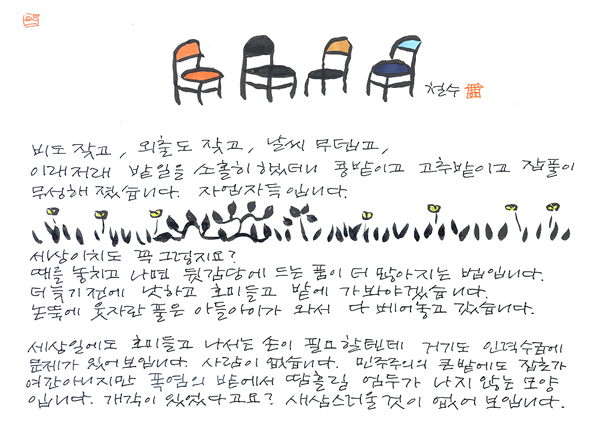 철수
비도 잦고, 외출도 잦고, 날씨 무덥고,
이래저래 밭일을 소홀히 했더니 콩밭이고 고추밭이고 잡풀이
무성해졌습니다. 자업자득입니다.
세상이치도 꼭 그렇지요?
때를 놓치고 나면 뒷감당에 드는 품이 더 많아지는 법입니다.
더 늦기전에 낫하고 호미들고 밭에 가봐야겠습니다.
논뚝에 웃자란 풀은 아들아이가 와서 다 베어놓고 갔습니다.
세상일에도 호미들고 나서는 손이 필요할텐데 거기도 인력수급에
문제가 있어보입니다. 사람이 없습니다. 민주주의의 콩밭에도 잡초가
여간아니지만 폭염의 밭에서 땀흘릴 엄두가 나지 않는 모양
입니다. 개각이 있었다고요? 새삼스러울것이 없어 보입니다.